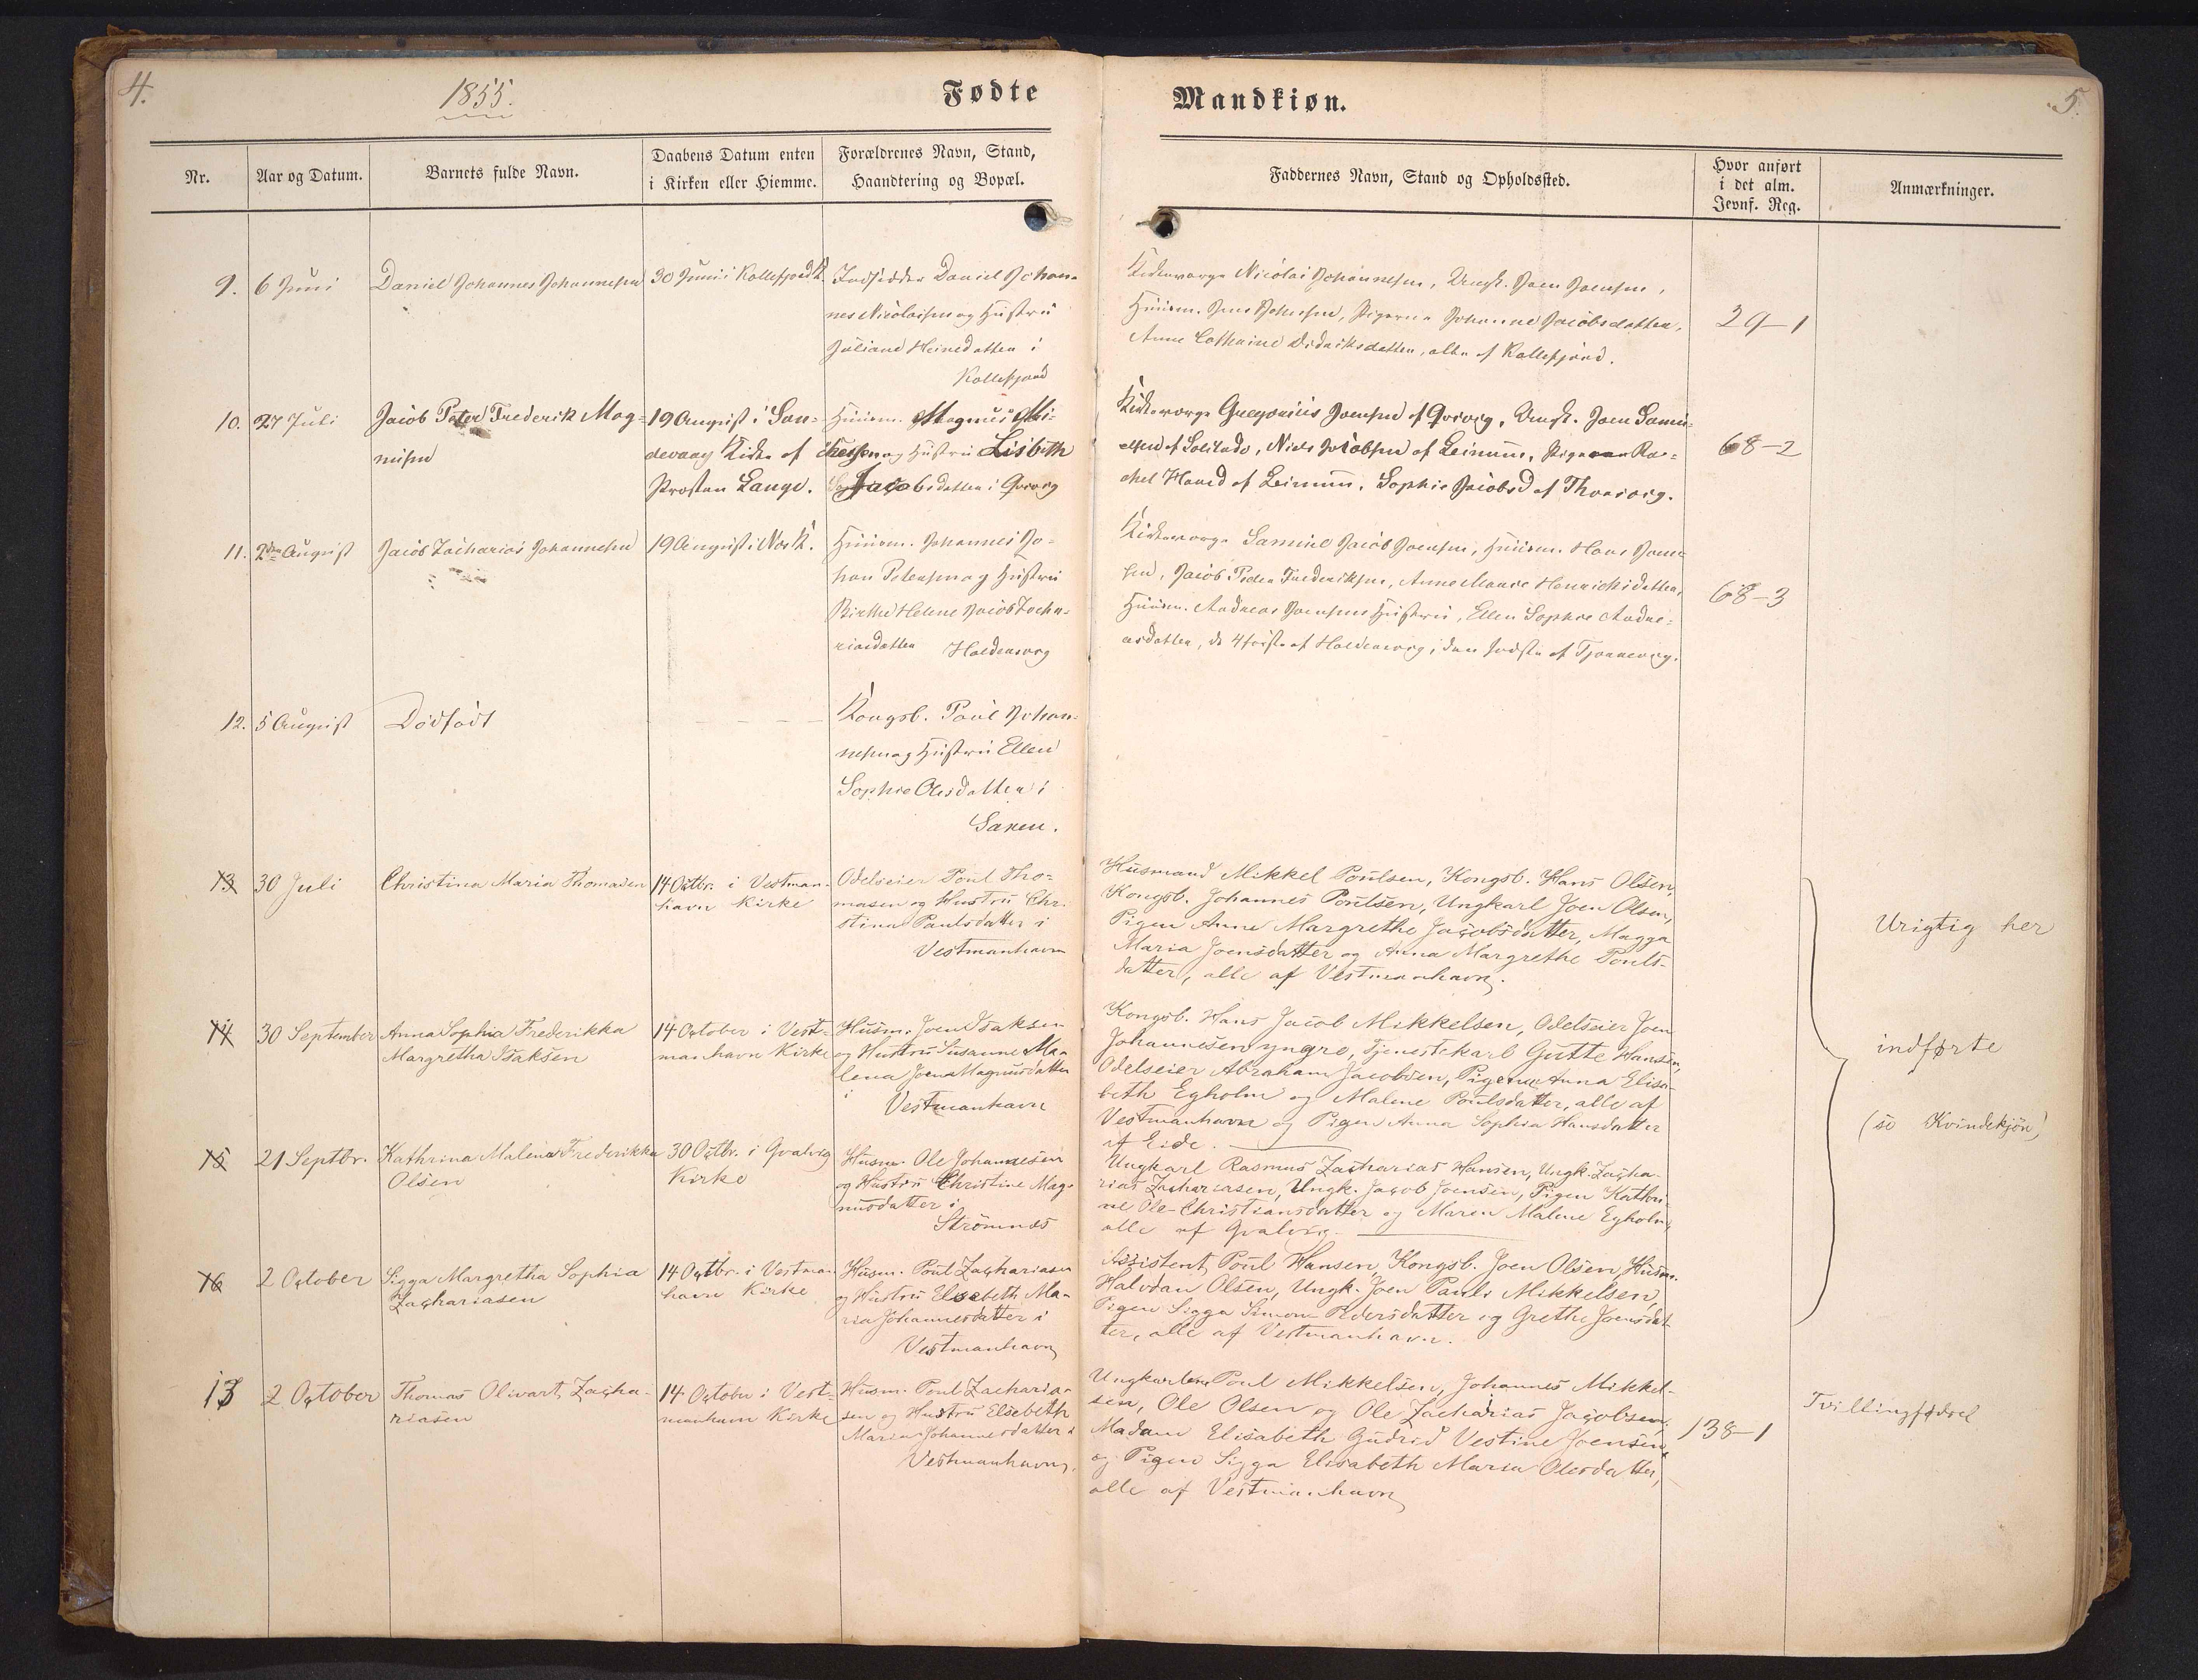 4.
1855.
Fødte
Mandkiøn.
5.
Nr.
Aar og Datum.
Barnets fulde Navn.
Daabens Datum enten
i Kirken eller Hiemme.
Forældrenes Navn, Stand,
Haandtering og Bopæl.
Faddernes Navn, Stand og Opholdssted.
Hvor anført
i det alm.
Jevnf. Reg.
Anmærkninger.
9.
6 Juni
Daniel Johannes Johannesen
30 Juni i Kollefjord K.
Indsidder Daniel Johan-
nes Nicolaisen og Hustru
Juliane Heinedatter i
Kollefjord
Kirkeværge Nicolai Johannesen, Ungk. Joen Joensen,
Huusm. Jens Johnsen, Pigerne Johanne Jacobsdatter,
Anne Cathrine Didriksdatter, alle af Kollefjord.
29-1
10.
27 Juli
Jacob Peter Frederik Mag-
nusen
19 August i San-
devaag Kirke af
Provsten Lange.
Huusm. Magnus Mi-
kkelsen og Hustru Lisbeth
Jacobsdatter i Qvivig
Kirkeværge Gregorius Joensen af Qvivig, Ungk. Joen Samu-
elsen af , Niels Jacobsen af Leinum, Pigerne Ra-
chel Hansd af Leinum, Sophie Jacobsd af .
68-2
11.
2den August
Jacob Zacharias Johannesen
19 August i Nes K.
Huusm. Johannes Jo-
han Petersen og Hustru
Birthe Helene Jacob Zacha-
riasdatter Haldensvig
Kirkeværge Samuel Jacob Joensen, Huusm. Hans Joen-
sen, Jacob Peder Frederiksen, Anne Marie Henrichsdatter,
Huusm. Andreas Joensens Hustru, Ellen Sophie Andre-
asdatter, de 4 første af Haldensvig, den sidste af Tjørnevig.
68-3
12.
5 August
Dødfødt
Kongsb. Poul Johan-
nesen og Hustru Ellen
Sophie Olesdatter i
Saxen.
13
30 Juli
Christina Maria Thomasen
14 Octbr. i Vestman-
havn Kirke
Odelseier Poul Tho-
masen og Hustru Chr.
stina Paulsdatter i
Vestmanhavn
Husmand Mikkel Poulsen, Kongsb. Hans Olsen,
Kongsb. Johannes Poulsen, Ungkarl Joen Olsen,
Pigen Anne Margrethe Jacobsdatter, Magga
Maria Joensdatter og Anna Margrethe Pouls-
datter, alle af Vestmanhavn.
Urigtig her
indførte
(se Kvindekjön)
14
30 September
Anna Sophia Frederikka
Margretha Isaksen
14 October i Vest-
manhavn Kirke
Husm. Joen Isaksen
og Hustru Susanne Ma-
lena Joen Magnusdatter
i Vestmanhavn
Kongsb. Hans Jacob Mikkelsen, Odelseier Joen
Johannesen yngre, Tjenestekarl Gutte Hansen,
Odelseier Abraham Jacobsen, Pigerne Anna Elisa-
beth Egholm og Malene Poulsdatter, alle af
Vestmanhavn og Pigen Anna Sophia Hansdatter
af Eide.
15
21 Septbr.
Kathrina Malena Frederikka
Olsen
30 Octbr. i Qvalvig
Kirke
Husm. Ole Johannesen
og Hustru Christine Mag-
nusdatter i
Strömnæs
Ungkarl Rasmus Zacharias Hansen, Ungk. Zacha-
rias Zachariasen, Ungk. Jacob Joensen, Pigen Kathri
ne Ole-Christiansdatter og Maren Malene Egholm,
alle af Qvalvig.
16
2 October
Sigga Margretha Sophia
Zachariasen
14 Octbr. i Vestman
havn Kirke
Husm. Poul Zachariasen
og Hustru Elsebeth Ma-
ria Johannesdatter i
Vestmanhavn
Assistent Poul Hansen, Kongsb. Joen Olsen, Husm.
Halvdan Olsen, Ungk. Joen Pauli Mikkelsen,
Pigen Sigga Simon-Pedersdatter og Grethe Joensdat
ter, alle af Vestmanhavn.
13
2 October
Thomas Olivart Zacha-
riasen
14 October i Vest-
manhavn Kirke
Husm. Poul Zacharia-
sen og Hustru Elsebeth
Maria Johannesdatter i
Vestmanhavn.
Ungkarlene Poul Mikkelsen, Johannes Mikkel-
sen, Ole Olsen og Ole Zacharias Jacobsen.
Madam Elisabeth Gudrid Vestine Joensen
og Pigen Sigga Elisabeth Maria Olesdatter,
alle af Vestmanhavn
138-1
Tvillingfødsel